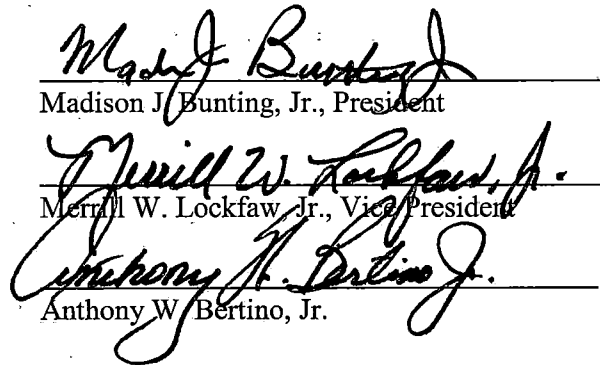 Madison J Bunting Jr
Madison J. Bunting, Jr., President
Merrill W. Lockfaw, Jr.
Merrill W. Lockfaw, Jr., Vice President
Anthony W. Bertino Jr.
Anthony W. Bertino, Jr.